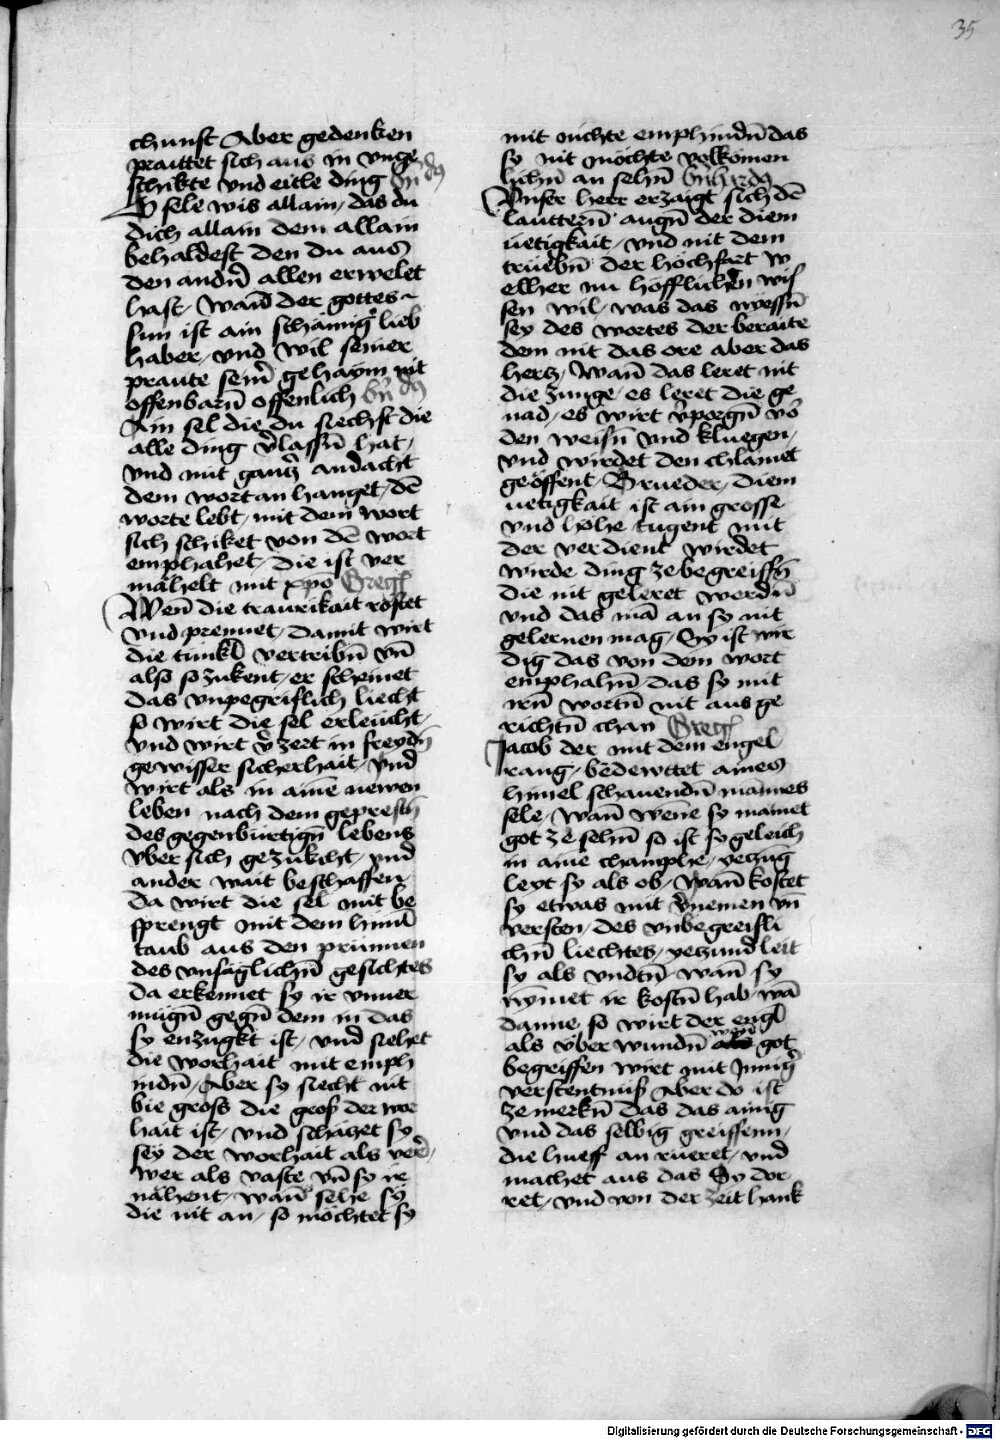 35
chunft Aber gedenken
praittet sich aus in vnge
schikte vnd eitle ding bn̄ dꝯ
O sele wis allain, das du
dich allain dem allain
behaldest den du aus
den andn̄ allen erwelet
hast, Wan̄ der gottes
sun ist ain schämig̉ lieb
haber, vnd wil seiner
praute sein̄ gehaym nit
offenbarn̄ offenlich bn̄ dꝯ
Ain sel die du siechst die
alle ding v̉lassn̄ hat,
vnd mit gantz̉ andacht
dem wort an hanget, dē
worte lebt, mit dem wort
sich schiket von dē wort
emphahet, die ist ver
mähelt mit xp̄o Greg̉
Wen̄ die traurikait röstet
vnd prennet, damit wirt
die tunkl̄ vertribn̄ vn̄
also so zukent, er scheinet
das vnpegriflich liecht
so wirt die sel erleücht,
vnd wirt v̉zert in freydn̄
gewisser sicherhait, vnd
wirt als in aine newen
leben nach dem geprestn̄
des gegenbürtign̄ lebens
vber sich gezukcht, vnd
ander wait beschaffen,
da wirt die sel mit be
sprengt mit dem himl̄
taub aus den prunnen
des vnsäglichn̄ gesichtes
da erkennet sy ir vnuer
mügn̄ gegn̄ dem in das
sy enzugkt ist, vnd siehet
die worhait mit emph
indn̄, Aber sy siecht nit
bie gross die gross der wor
hait ist, vnd schäczet sy
sey der worhait als verr̄,
wer als vaste vn̄ sy ir
nähent, wan̄ sehe sy
die nit an, so möchtet sy
mit nichte emphindn̄ das
sy nit möchte volkomen
lichn̄ an sehn̄ bn̄hardꝯ
Vnser herr erzaigt sich dē
lauttern̄ augn̄ der diem
üetigkait, vnd nit dem
trüebn̄ der hochfart w
elher nu höfflichen wis
sen wil, was das wessn̄
sey des wortes der beraite
dem nit das ore aber das
hercz, Wan̄ das leret nit
die zunge, es leret die ge
nad, es wirt v̉porgn̄ vō
den weisn̄ vnd kluegen,
vnd wirdet den chlainet
geöffent, Brueder, diem
uetigkait ist ain grosse
vnd hohe tugent mit
der verdient wirdet
wirde ding ze begreiffn̄
die nit geleret werdn̄
vnd das mā an sy nit
gelernen mag, Sy ist wir
dig das von dem wort
emphahn̄ das sy mit
irn̄ wortn̄ nit aus ge
richtn̄ chan Greg̉
Jacob der mit dem engel
rang, bedewttet aines
himel schauendn̄ mannes
sele, wan̄ wenne sy mainet
got ze sehn̄ so ist sy geleich
in aine champhe, yeczūg
leyt sy als ob, wan̄ kostet
sy etwas mit v̉nemen vn̄
versten, des vnbegreifli
chn̄ liechtes, yeczund leit
sy als vndtn̄ wan̄ sy
wynnet ir kostn̄ hab, wā
danne so wirt der engl̄
als v̈ber wundn̄ wann got
begriffen wirt mit Innig̉
verstentnuß Aber do ist
ze merkn̄ das das ainig
vnd das selbig greiffenn,
die hueff an rueret, vnd
machet aus das Sy dor
ret, vnd von der zeit hank
Digitalisierung gefördert durch die Deutsche Forschungsgemeinschaft - DFG